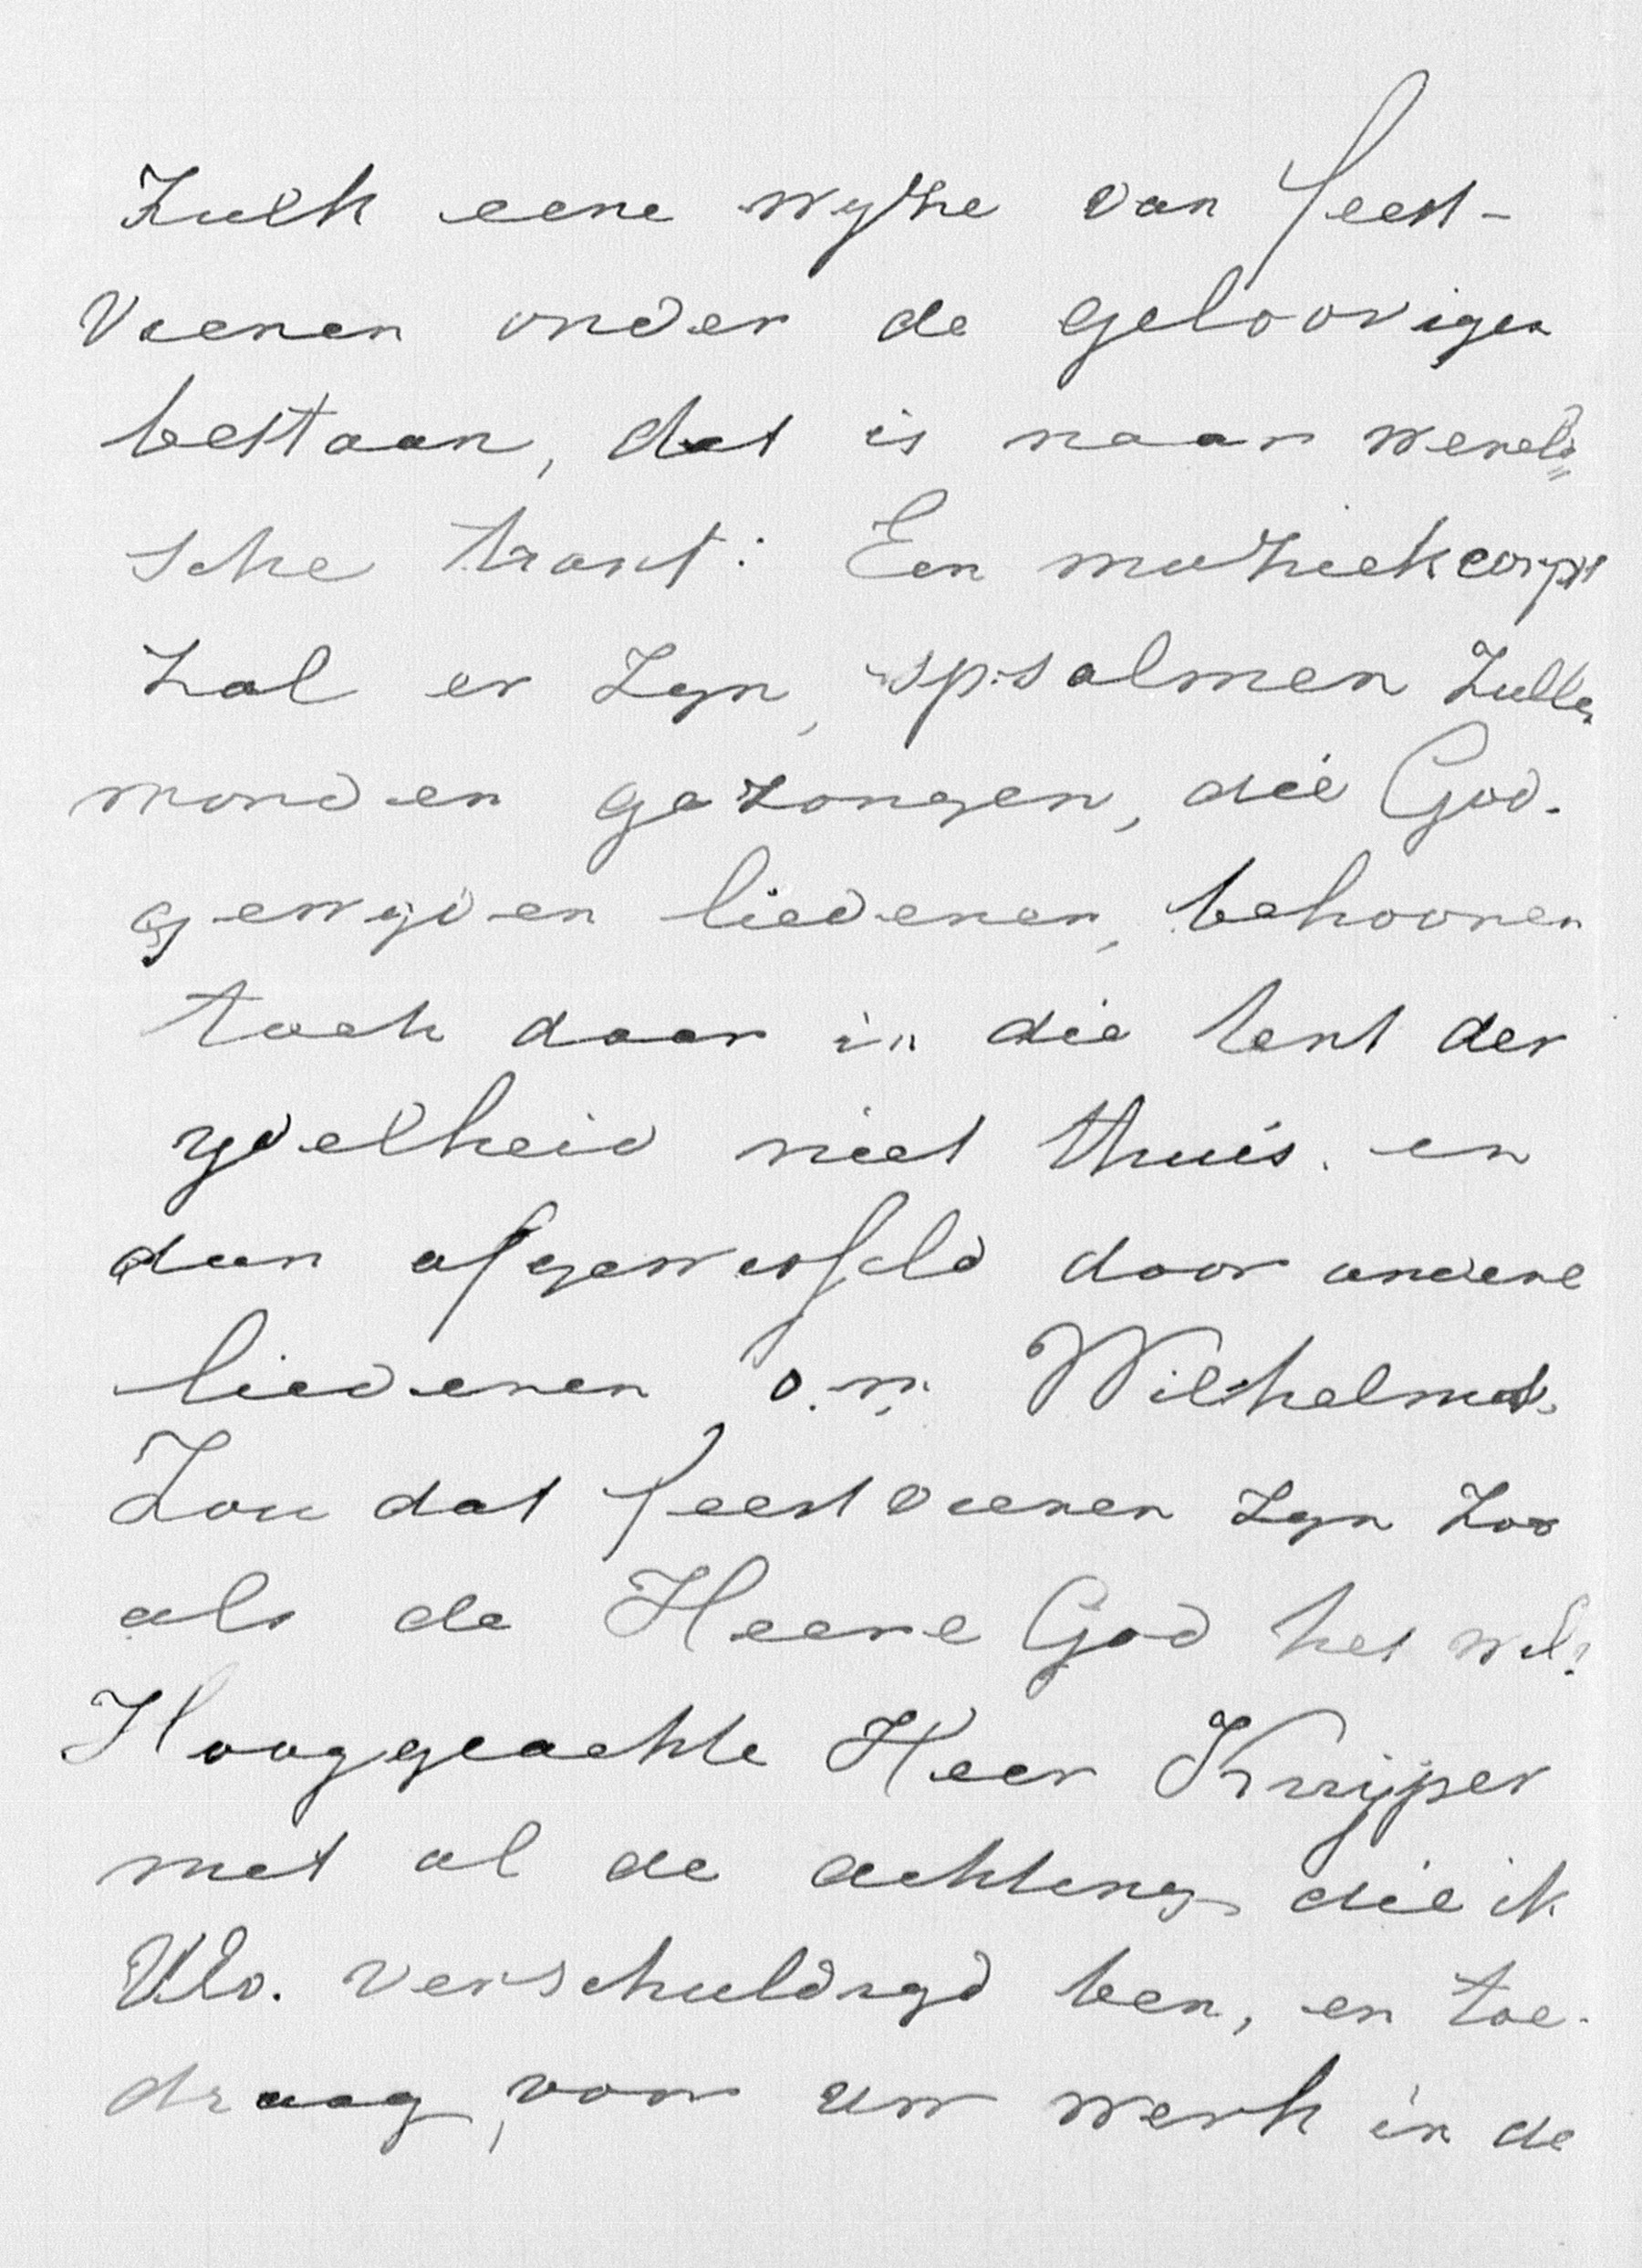 Zulk eene wyze van feest-
vieren onder de geloovigen
bestaan, dat is naar wereld=
sche trant: Een muziekcorps
zal er zyn, psalmen zullen
worden gezongen, die God-
gewyden liederen, behooren
toch daar in die tent der
ydelheid niet thuis. en
dan afgewisseld door andere
liederen o.a. Wilhelmus.
Zou dat feestvieren zyn zoo
als de Heere God het wil?
Hooggeachte Heer Kuijper
met al de achting die ik
UEd. verschuldigd ben, en toe-
draag, voor uw werk in de